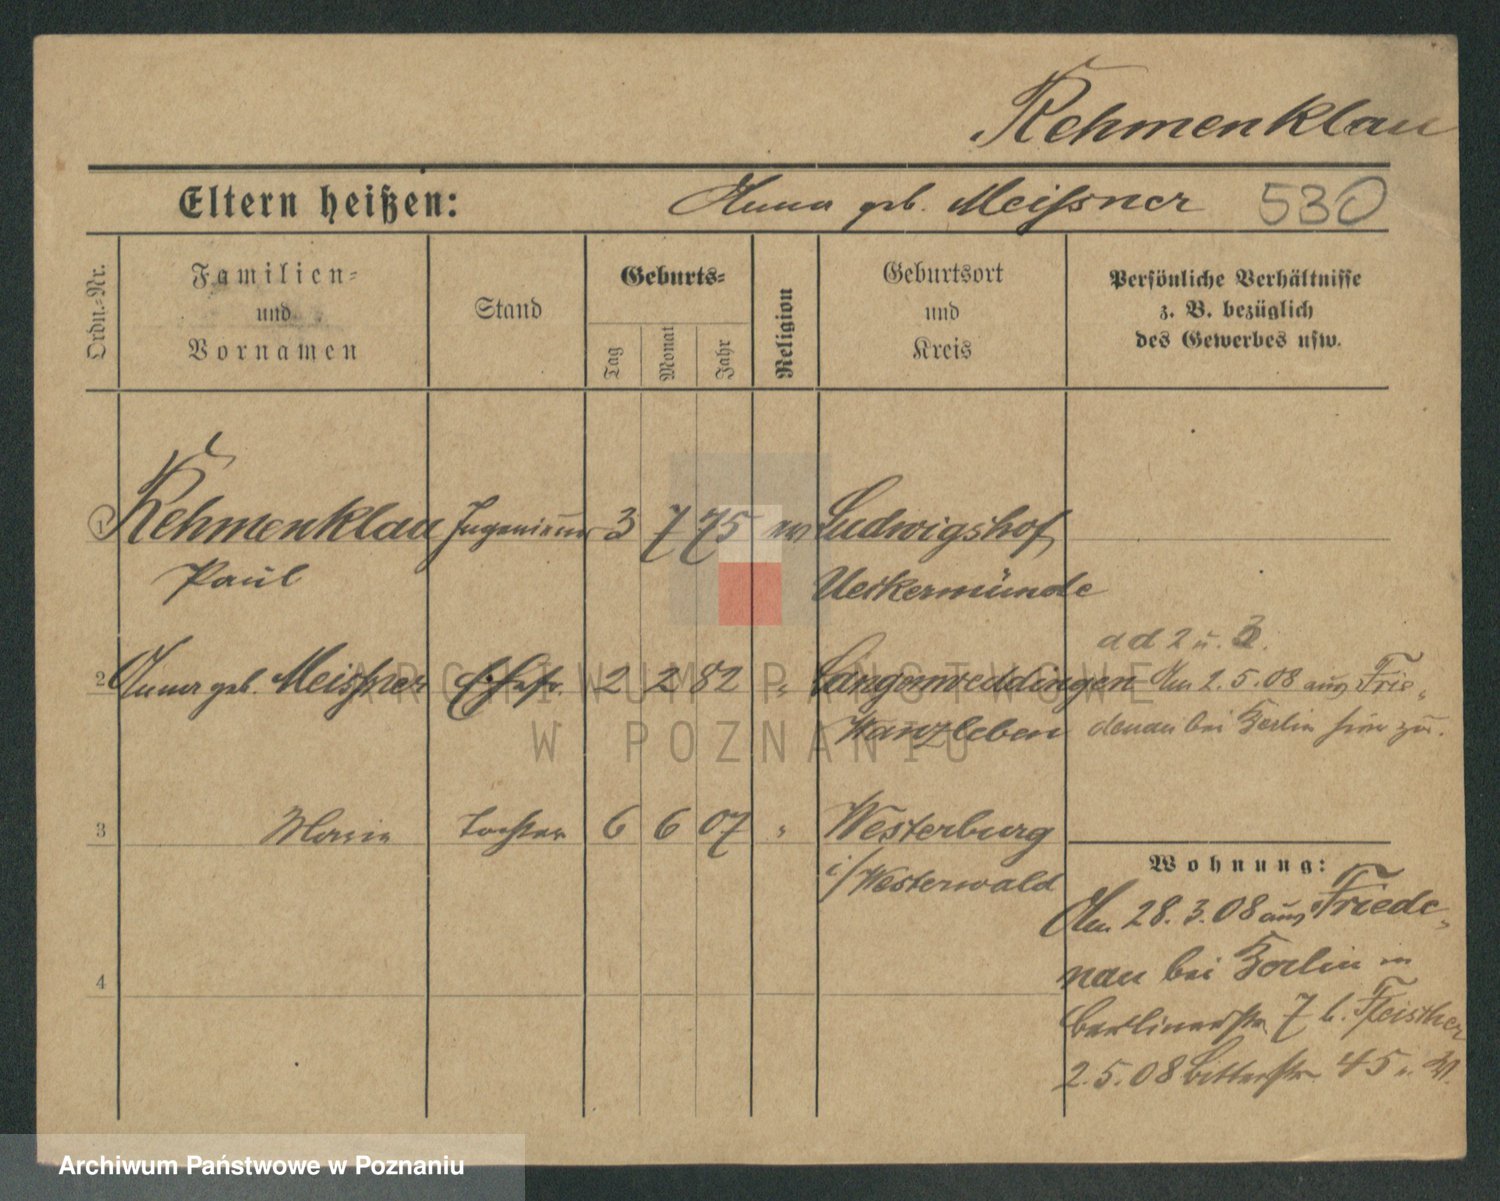 Rehmenklau
Eltern heißen: Anna geb. Meißner 530
Ordn.-Nr.
Familien-
und
Vornamen
Stand
Geburts-
Tag
Monat
Jahr
Religion
Geburtsort
und
Kreis
Persönliche Verhältnisse
z. B. bezüglich
des Gewerbes usw.
1 Rehmenklau Ingenieur 3 7 75 ev Ludwigshof
Paul Ueckermünde
ad 2 u. 3.
2 Anna geb. Meißner Ehefr. 2 2 82 " Langenweddingen Am 2.5.08 aus Frie-
Wanzleben denau bei Berlin hier zu.
3 Maria Tochter 6 6 07 " Westerburg
i/Westerwald
Wohnung:
Am 28.3.08 aus Friede-
nau bei Berlin in
4
Berlinerstr. 7 b. Fleischer
2.5.08 Bitterstr. 45 u. W.
ARCHIWUM PAŃSTWOWE
W POZNANIU
Archiwum Państwowe w Poznaniu